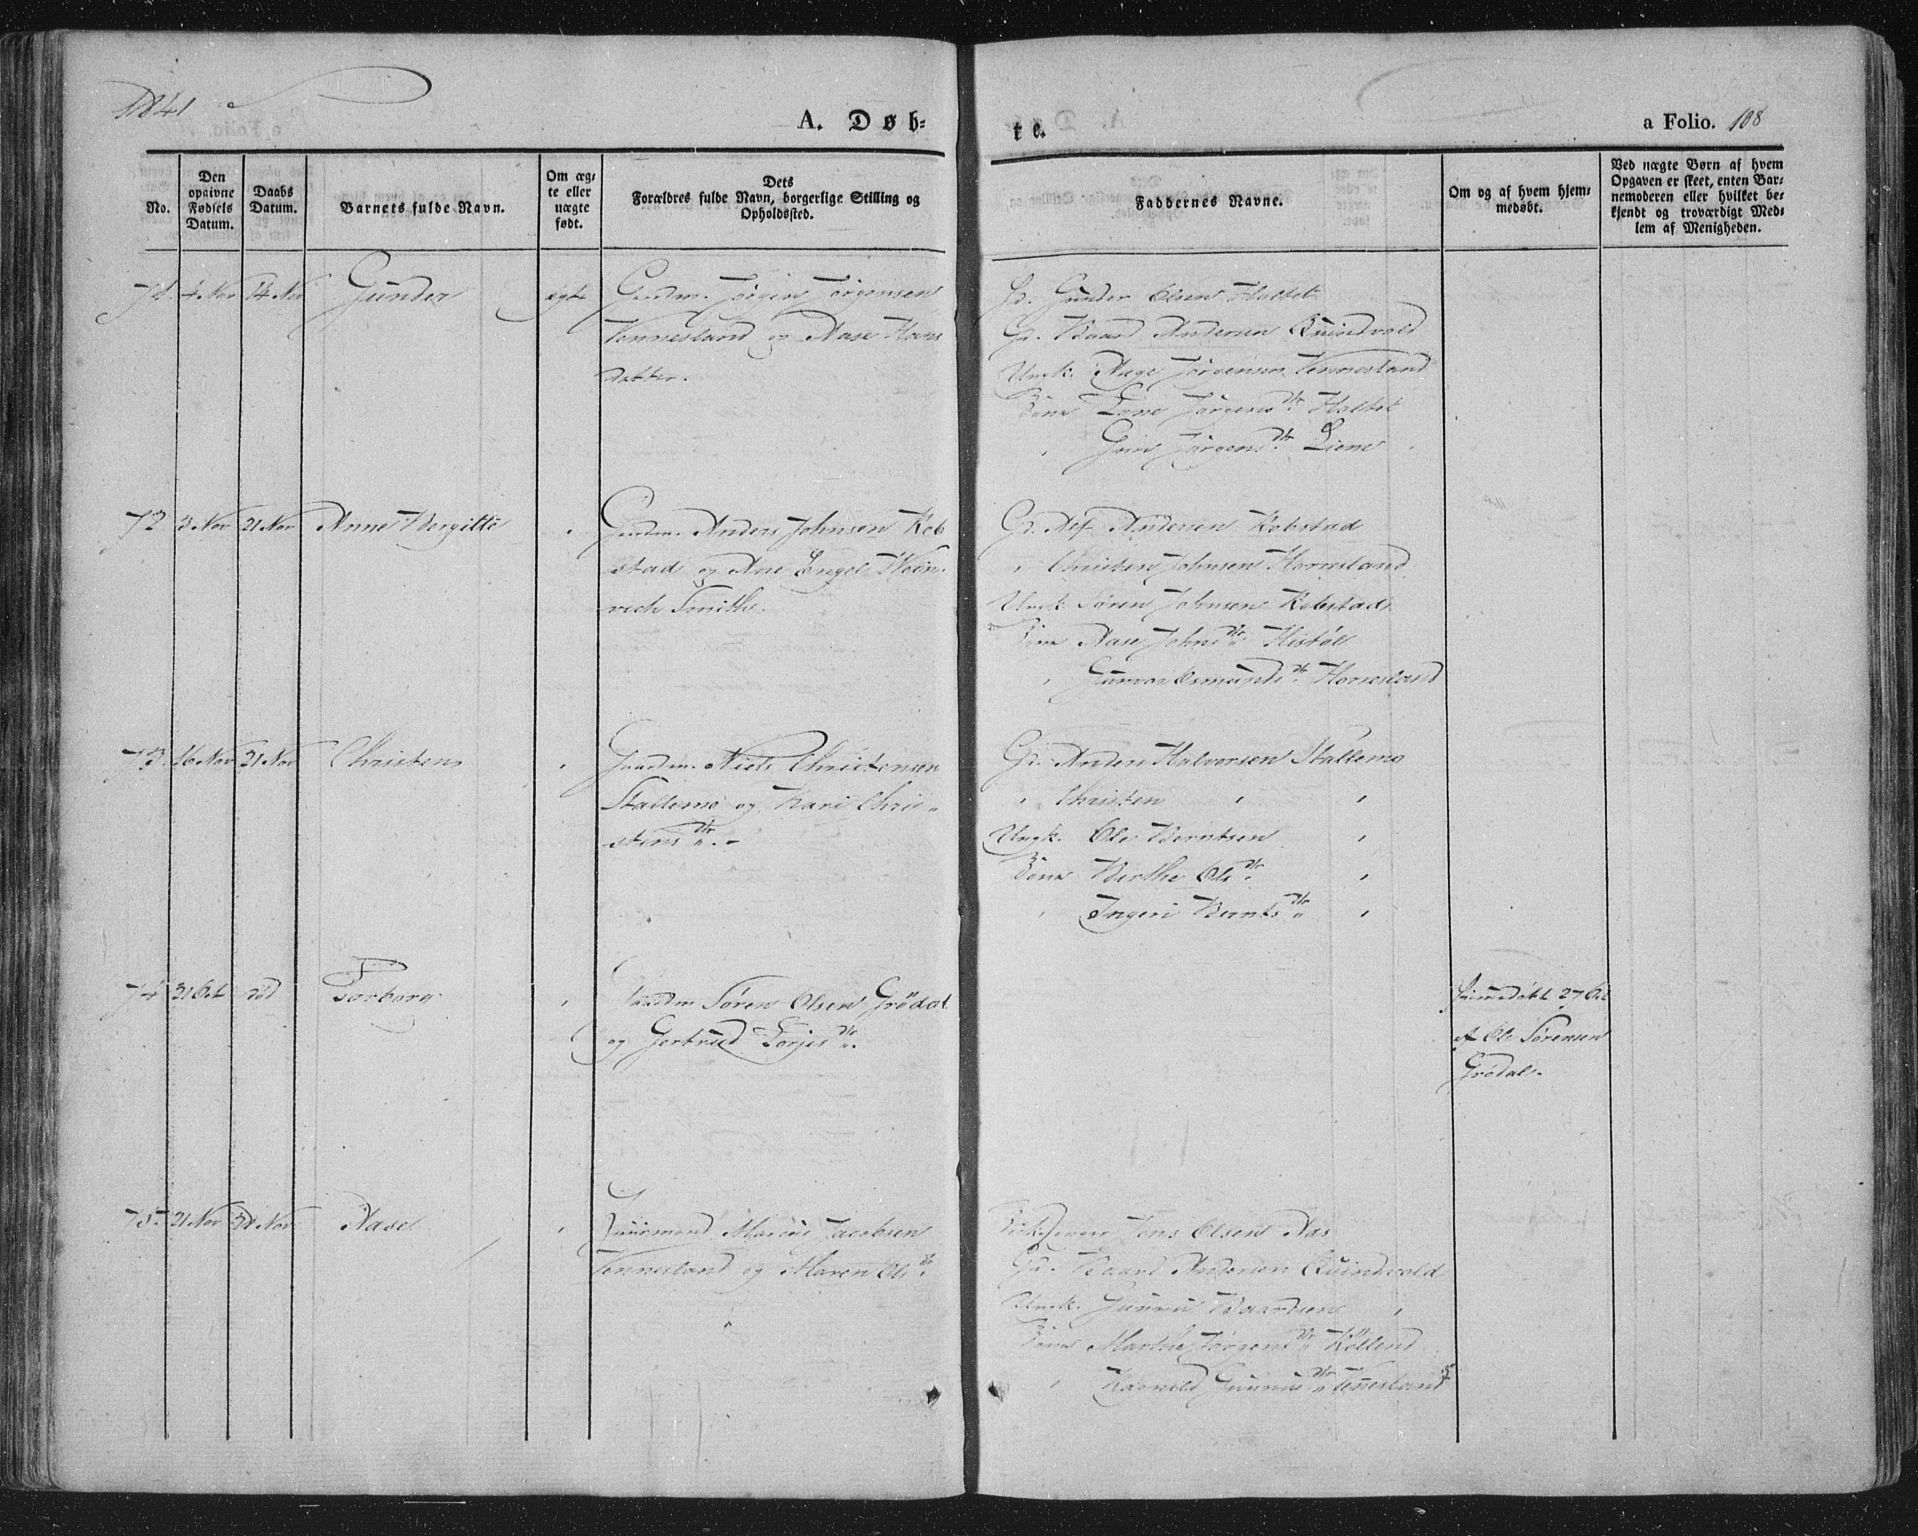 1841
A. Døb-
te.
a Folio. 108
No.
Den opgivne Fødsels Datum.
Daabs Datum.
Barnets fulde Navn.
Om ægte eller uægte født.
Dets Forældres fulde Navn, borgerlige Stilling og Opholdssted.
Faddernes Navne.
Om og af hvem hjemmedøbt.
Ved uægte Børn af hvem Opgaven er skeet, enten Barnemoderen eller hvilket bekjendt og troværdigt Medlem af Menigheden.
71. 4 Nov 14 Nov Gunder ægte Gaardm. Jørgen Jørgensen
Vennesland og Aase Hans
datter.
Gd. Gunder Olsen Haltet
Gd. Baard Andersen Quindvold
Ungk. Aage Jørgensen Vennesland
Kone Tone Jørgens dtr. Haltet
" Guri Jørgens dtr. Liene
72 3 Nov 21 Nov Anne Bergitte " Gaardm. Anders Johnsen Rob
stad og Ane Engel Hein
rich Smith.
Gd. Alf Andersen Robstad
" Christen Johnsen Horrisland
Ungk. Søren Johnsen Robstad
Kone Aase Johns dtr. Histøl
" Gunvor Osmunds dtr. Horrisland
73. 16 Nov 21 Nov Christen " Gaardm. Niels Christensen
Stallemo og Kari Chri-
stens dtr.
Gd. Anders Halvorsen Stallemo
" Christen " "
Ungk. Ole Berntsen "
Kone Berthe Ols dtr. "
" Ingeri Bernts dtr. "
74 21 Oct død Torborg " Gaardm. Søren Olsen Grødal
og Gertrud Torjes dtr.
Hjemmedøbt 27 Oct
af Ole Sørensen
Grødal.
75. 21 Nov Nov Aase " Huusmand Marcus Jacobsen
Vennesland og Maren Ols dtr.
Kirkesanger Jens Olsen Aas
Gd. Baard Andersen Quindvold
Ungk. Gunnu Baardsen "
Kone Marthe Jørgens dtr.
" Gunnus dtr. Vennesland